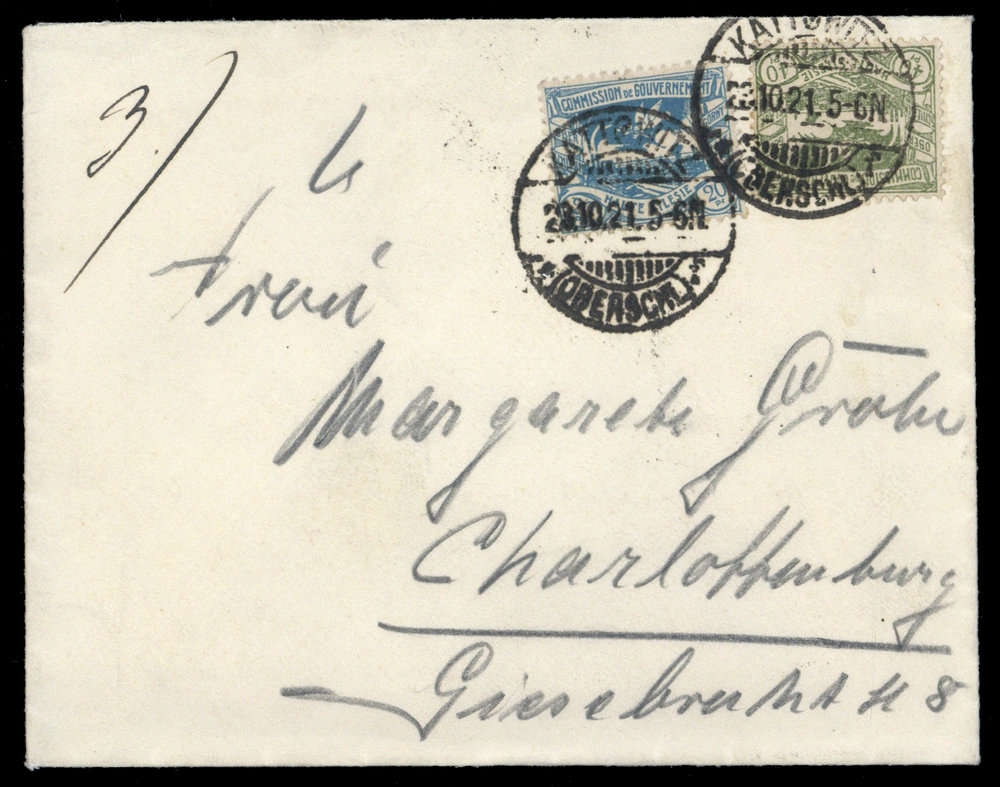 3.)
KATTOWITZ
23.10.21. 5-6N
* (OBERSCHL.)
COMMISSION DE GOUVERNEMENT
HAUTE SILESIE
20 PF
KATTOWITZ
23.10.21. 5-6N
(OBERSCHL.)
10
Frau
Margarete
Charlottenburg
Giesebrechtst 8